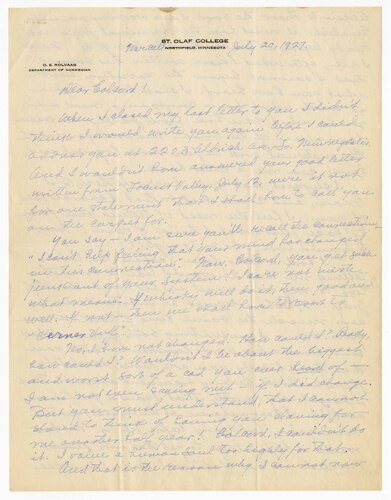 ST. OLAF COLLEGE
NORTHFIELD, MINNESOTA
O. E. ROLVAAG
DEPARTMENT OF NORWEGIAN
Marcell July 20, 1927.
Dear Colcord!
When I closed my last letter to you I didn't
think I would write you again before I could
address you at 2203 Aldrich Ave. So. Minneapolis.
And I wouldn't have answered your good letter
written from Locust Valley, July 12, were it not
for one statement that I shall have to call you
on the carpet for.
You say — I am sure you'll recall the connection —
"I can't help feeling that your mind has changed
in this connection." Now, Colcord, you get such
"junk out of your system". I care not with
what means. If whisky will do it, then good and
well. If not — then we shall have to resort to
"
No, I have not changed. How could I? Really,
how could I? Wouldn't I be about the biggest
and worst sort of a cad you ever heard of —
I am not even saying met — if I had changed.
But you must understand, that I cannot
stand to think of having you slaving for
me another half year! Colcord, I couldn't do
it. I value a human soul too highly for that.
And that is the reason why I cannot now